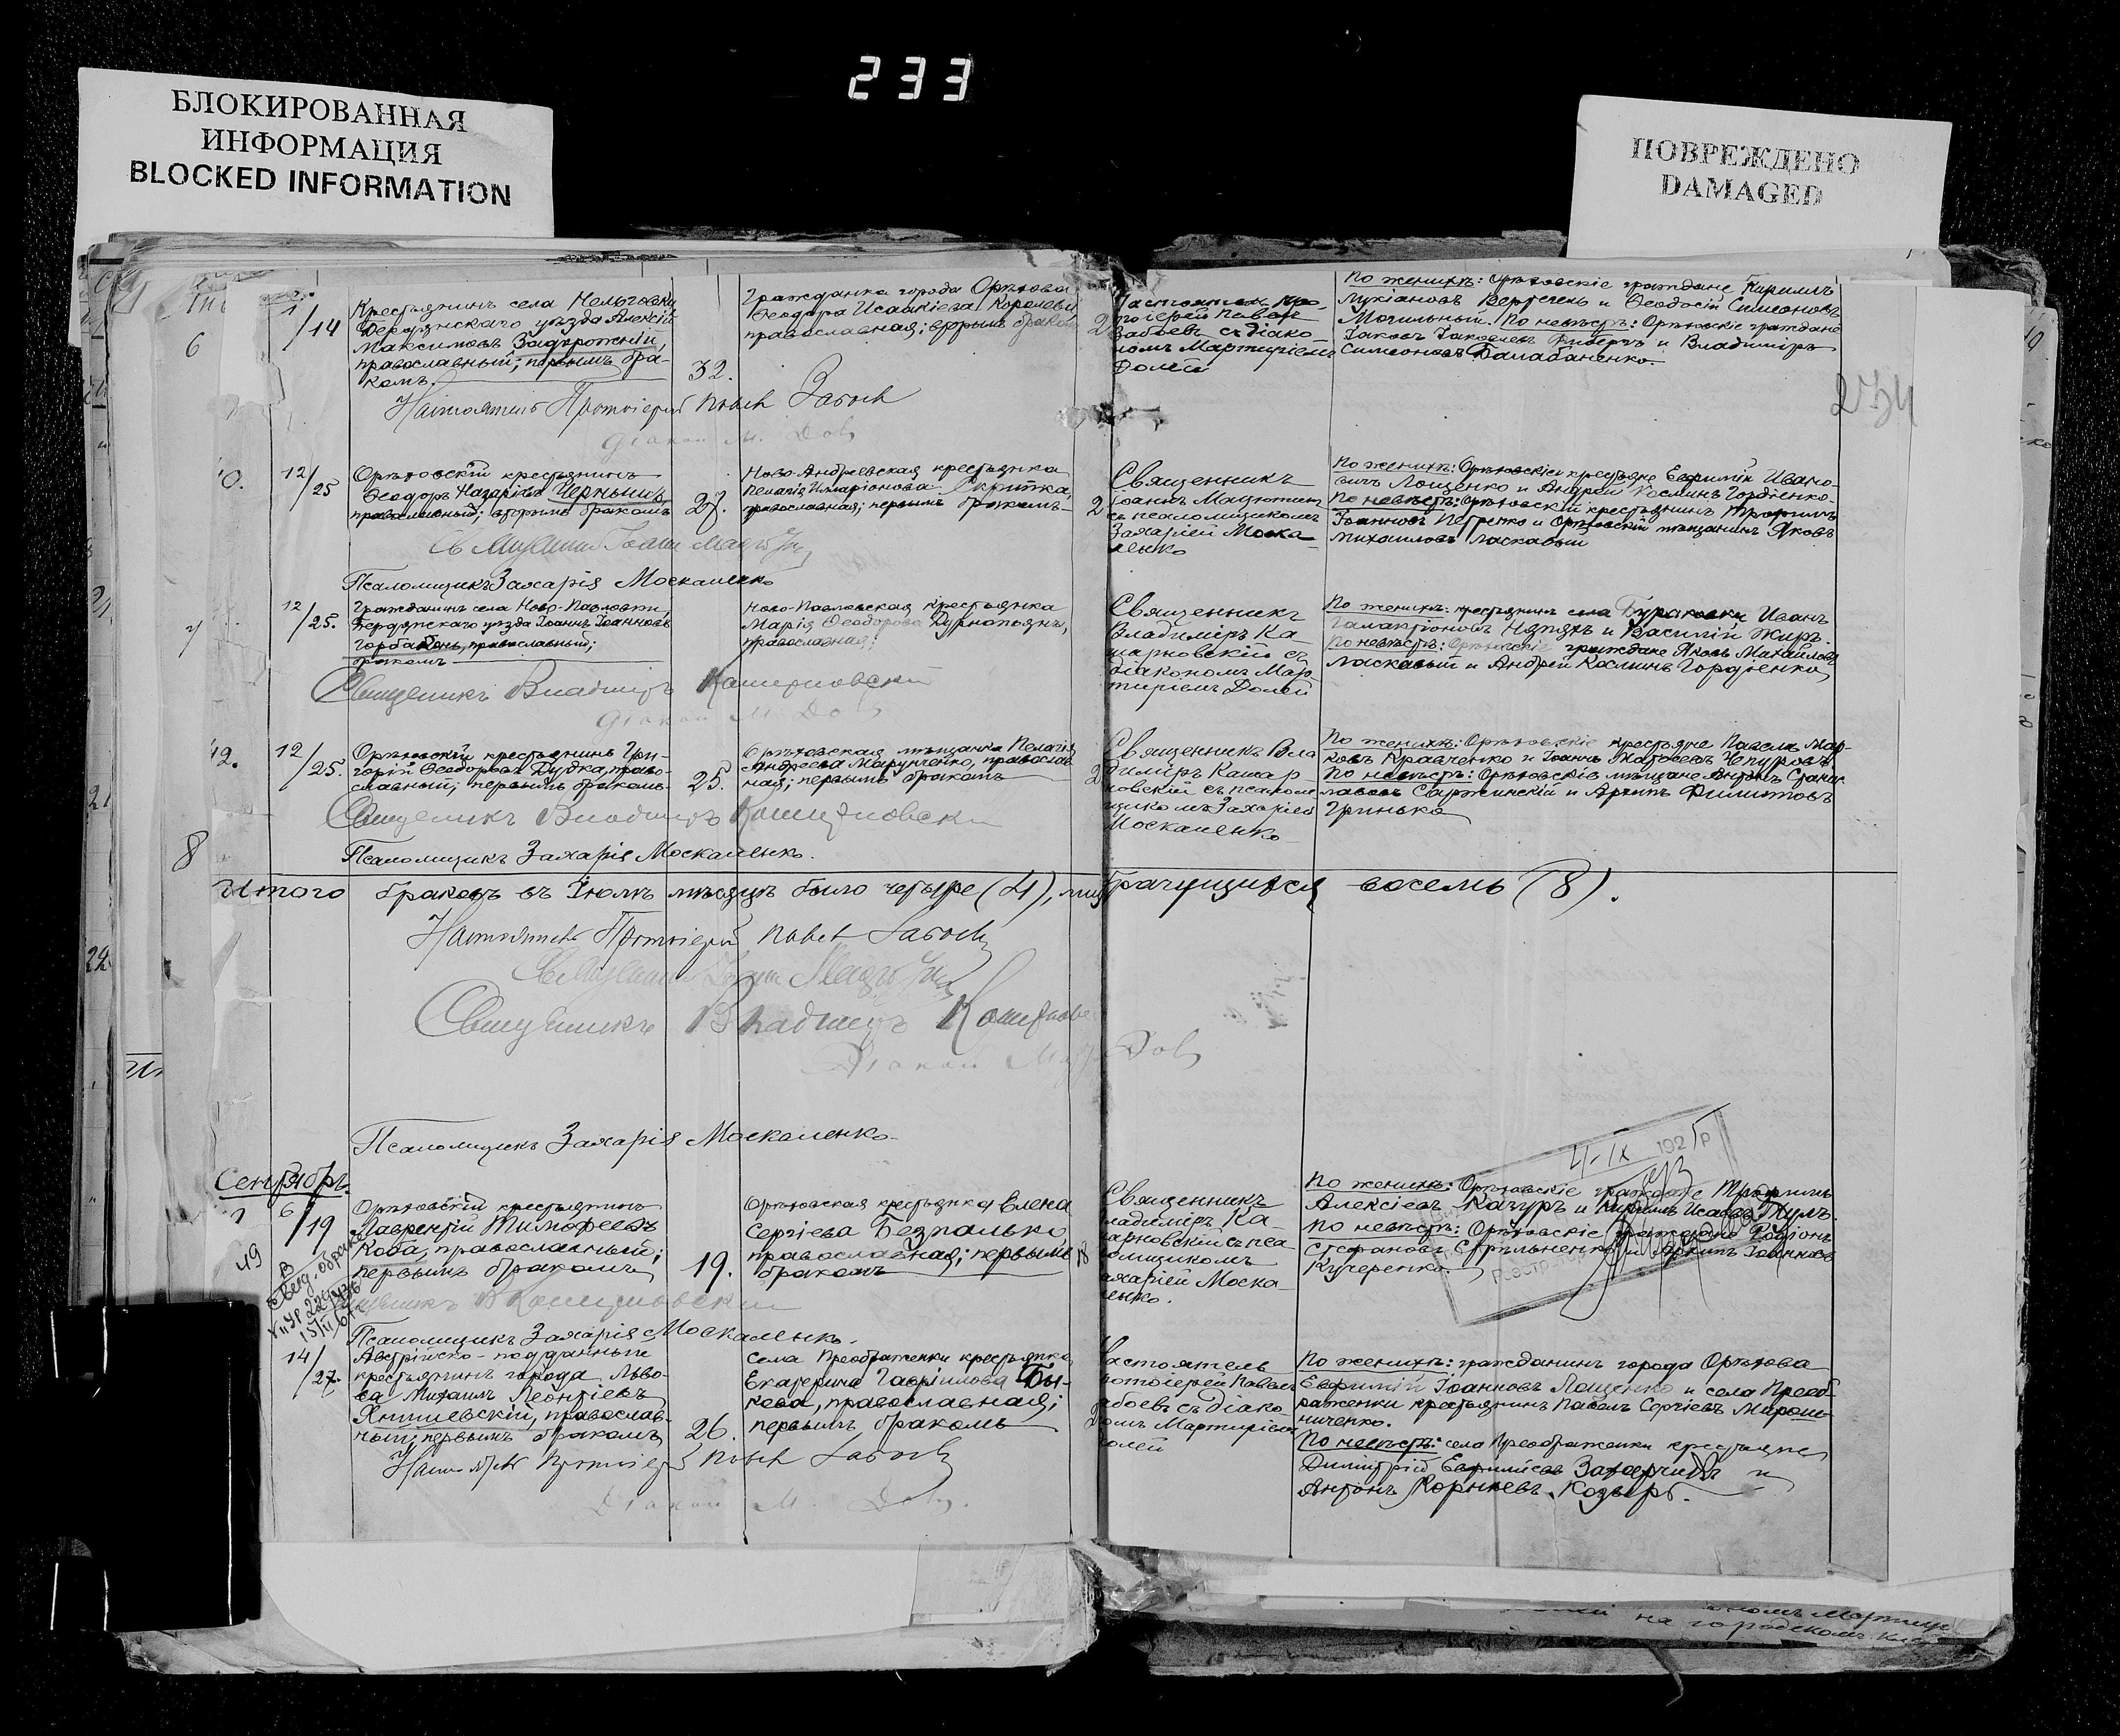 233
БЛОКИРОВАННАЯ
ИНФОРМАЦИЯ
BLOCKED INFORMATION
ПОВРЕЖДЕНО
DAMAGED
234
6
1/14
Крестьянинъ села Нельговки
Бердянскаго уѣзда Алексій
Максимовъ Задорожній,
православный; первымъ бра-
комъ.
32.
Гражданка города Орѣхова
Ѳеодора Исаакіева
православная; вторымъ бракомъ
Настоятель про-
тоіерей Павелъ
Забоевъ съ діако-
номъ Мартиріемъ
Долей
По женихѣ: Орѣховскіе граждане Кириллъ
Лукіановъ и Ѳеодосій Симеоновъ
Могильный. По невѣстѣ: Орѣховскіе граждане
Іаковъ Іаковлевъ и Владиміръ
Симеоновъ Балабаненко.
Настоятель Протоіерей Павелъ Забоевъ
Діаконъ М. Доля
12/25
Орѣховскій крестьянинъ
Ѳеодоръ Назаріевъ Чернышъ,
православный; вторымъ бракомъ
27.
Ново-Андреевская крестьянка
Пелагія Иларіонова Скрипка,
православная; первымъ бракомъ
Священникъ
Іоаннъ
съ псаломщикомъ
Захаріей Моска-
ленко
По женихѣ: Орѣховскіе крестьяне Евфимій Ивано-
вичъ Лощенко и Андрей Косминъ Гордіенко.
По невѣстѣ: Орѣховскій крестьянинъ Трофимъ
Іоанновъ Петренко и Орѣховскій мѣщанинъ Яковъ
Михайловъ Ласкавый
Псаломщикъ Захарія Москаленко
12/25.
Гражданинъ села Ново-Павловки,
Бердянскаго уѣзда Іоаннъ Іоанновъ
Горбаконь, православный;
бракомъ
Ново-Павловская крестьянка
Марія Ѳеодорова Дурнопьянъ,
православная;
Священникъ
Владиміръ Ка-
шарновскій съ
діакономъ Мар-
тиріемъ Долей
По женихѣ: крестьянинъ села Бураковки Иванъ
Галактіоновъ и Василій Жиръ.
По невѣстѣ: Орѣховскіе граждане Яковъ Михайловъ
Ласкавый и Андрей Косминъ Гордіенко
Священникъ Владиміръ Кашарновскій
Діаконъ М. Доля
12.
12/25.
Орѣховскій крестьянинъ Гри-
горій Ѳеодоровъ Дудка, право-
славный; первымъ бракомъ
25.
Орѣховская мѣщанка Пелагія
Андреева Марунченко, православ-
ная; первымъ бракомъ
Священникъ Вла
диміръ Кашар
новскій съ псалом
щикомъ Захаріей
Москаленко
По женихѣ: Орѣховскіе крестьяне Павелъ Мар-
ковъ Кравченко и Іоаннъ Матѳеевъ Чпуровъ
По невѣстѣ: Орѣховскіе мѣщане Антонъ Станис
лавовъ Саржинскій и Архипъ Филиповъ
Гринько
Священникъ Владиміръ Кашарновскій
8
Псаломщикъ Захарія Москаленко.
Итого браковъ въ Іюлѣ мѣсяцѣ было четыре (4), лицъ брачущихся восемь (8).
Настоятель Протоіерей Павелъ Забоевъ
Священникъ Владиміръ Кашарнов
Псаломщикъ Захарія Москаленко
Сентябрь.
6/19
Орѣховскій крестьянинъ
Лаврентій Тимоѳеевъ
Коба, православный;
первымъ бракомъ
19.
Орѣховская крестьянка Елена
Сергіева Безпалько,
православная; первымъ
бракомъ
18
Священникъ
ладиміръ Ка-
арновскій съ пса-
омщикомъ
ахаріей Моска-
ленко.
По женихѣ: Орѣховскіе граждане Трофимъ
Алексіевъ Качуръ и Кириллъ Исаевъ
По невѣстѣ: Орѣховскіе граждане Родіонъ
Стефановъ Стрѣльненко и Архипъ Іоанновъ
Кучеренко
Псаломщикъ Захарія Москаленко.
14/27.
Австрійско-подданный
крестьянинъ города Льво-
ва Михаилъ Леонтіевъ
Янишевскій, православ-
ный; первымъ бракомъ
26.
Села Преображенки крестьянка
Екатерина Гавріилова Бы-
кова, православная;
первымъ бракомъ
астоятель
ротоіерей Павелъ
абоевъ съ діако-
омъ Мартиріемъ
олей
По женихѣ: гражданинъ города Орѣхова
Евфимій Іоанновъ Лощенко и села Преоб-
раженки крестьянинъ Павелъ Сергіевъ Мирош-
ниченко.
По невѣстѣ: села Преображенки крестьяне
Димитрій Евфиміевъ и
Антонъ Корніевъ Козырь.
Настоятель Протоіерей Павелъ Забоевъ
Діаконъ М. Доля.